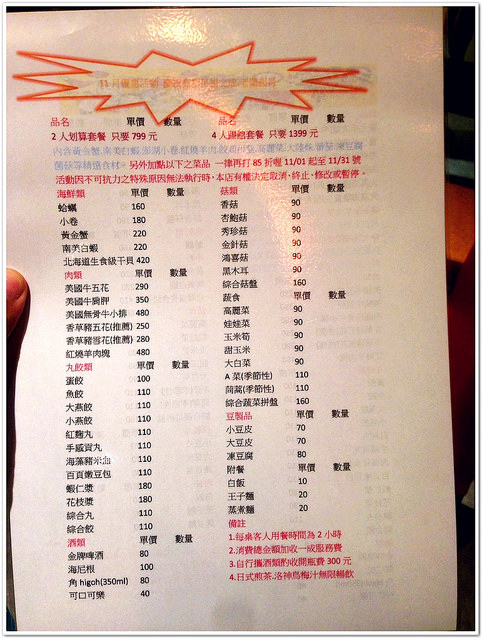 品名 單價 數量
2 人划算套餐 只要 799 元
品名 單價 數量
4 人超值套餐 只要 1399 元
菌菇等精選食材。另外加點以下之菜品 一律再打 85 折喔 11/01 起至 11/31 號
活動因不可抗力之特殊原因無法執行時,本店有權決定取消、終止、修改或暫停。
海鮮類 單價 數量
蛤蠣 160
小卷 180
黃金蟹 220
南美白蝦 220
北海道生食級干貝 420
肉類 單價 數量
美國牛五花 290
美國牛肩胛 350
美國無骨牛小排 480
香草豬五花(推薦) 250
香草豬雪花(推薦) 280
紅燒羊肉塊 480
丸餃類 單價 數量
蛋餃 100
魚餃 110
大燕餃 110
小燕餃 110
紅麴丸 110
手感貢丸 110
海藻豬米血 110
百頁嫩豆包 110
蝦仁漿 180
花枝漿 180
綜合丸 110
綜合餃 110
酒類 單價 數量
金牌啤酒 80
海尼根 100
角 higoh(350ml) 80
可口可樂 40
菇類 單價 數量
香菇 90
杏鮑菇 90
秀珍菇 90
金針菇 90
鴻喜菇 90
黑木耳 90
綜合菇盤 160
蔬食 單價 數量
高麗菜 90
娃娃菜 90
玉米筍 90
甜玉米 90
大白菜 90
A 菜(季節性) 110
茼蒿(季節性) 110
綜合蔬菜拼盤 160
豆製品 單價 數量
小豆皮 70
大豆皮 70
凍豆腐 80
附餐 單價 數量
白飯 10
王子麵 20
蒸煮麵 20
備註
1.每桌客人用餐時間為 2 小時
2.消費總金額加收一成服務費
3.自行攜酒類酌收開瓶費 300 元
4.日式煎茶.洛神烏梅汁無限暢飲